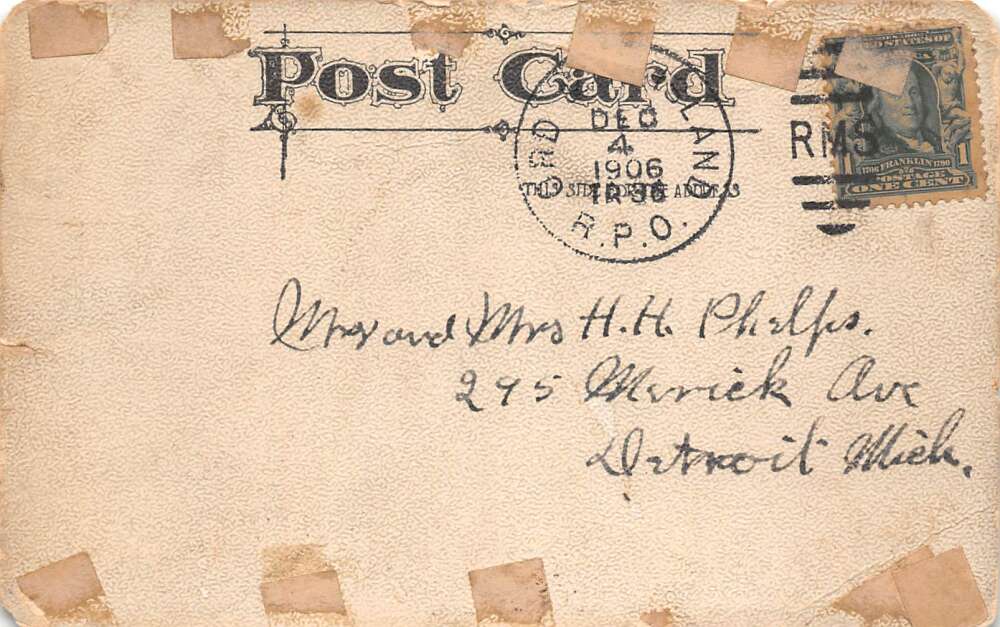 Post Card
THIS SIDE FOR THE ADDRESS
DEC
4
1906
R.P.O.
RMS
UNITED STATES OF
1706 FRANKLIN 1790
POSTAGE
ONE CENT
1
Mr and Mrs H. H. Phelps.
295 Merrick Ave
Detroit Mich.